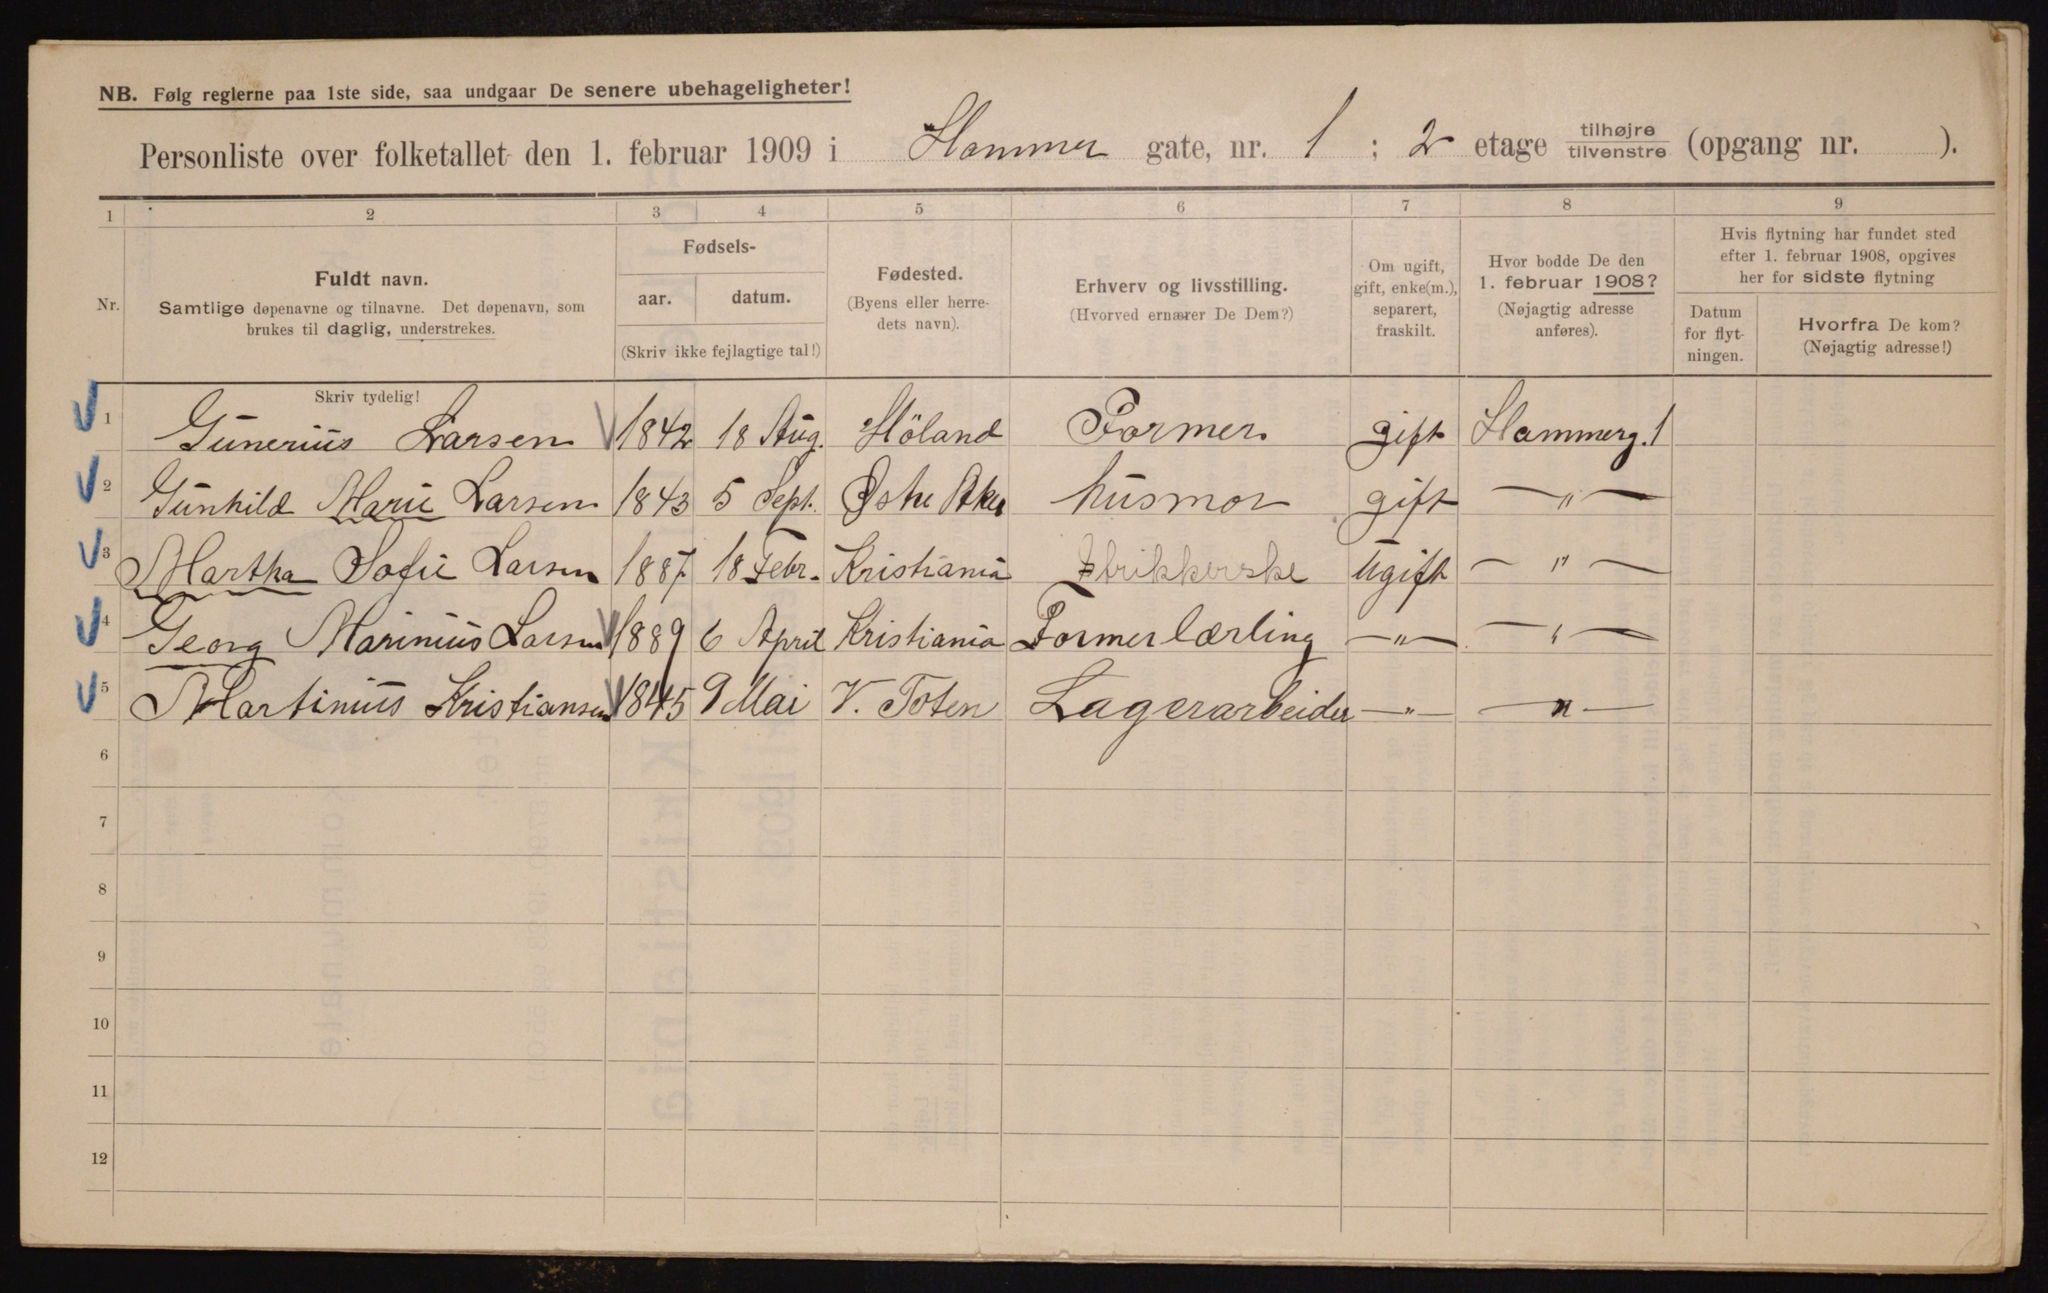 NB. Følg reglerne paa 1ste side, saa undgaar De senere ubehageligheter!
Personliste over folketallet den 1. februar 1909 i Hammer gate, nr. 1 ; 2 etage tilhøjre tilvenstre (opgang nr. ).
1 2 3 4 5 6 7 8 9
Nr.
Fuldt navn.
Samtlige døpenavne og tilnavne. Det døpenavn, som
brukes til daglig, understrekes.
Skriv tydelig!
Fødsels-
aar. datum.
(Skriv ikke fejlagtige tal!)
Fødested.
(Byens eller herre-
dets navn).
Erhverv og livsstilling.
(Hvorved ernærer De Dem?)
Om ugift,
gift, enke(m.),
separert,
fraskilt.
Hvor bodde De den
1. februar 1908?
(Nøjagtig adresse
anføres).
Hvis flytning har fundet sted
efter 1. februar 1908, opgives
her for sidste flytning
Datum
for flyt-
ningen.
Hvorfra De kom?
(Nøjagtig adresse!)
1 Gunerius Larsen 1842 18 Aug. Höland Former gift Hammerg. 1
2 Gunhild Marie Larsen 1843 5 Sept. Østre Aker husmor gift — " —
3 Martha Sofie Larsen 1887 18 Febr. Kristiania Strikkerske Ugift — " —
4 Georg Marinius Larsen 1889 6 April Kristiania Formerlærling — " — — " —
5 Martinius Kristiansen 1845 9 Mai V. Toten Lagerarbeider — " — — " —
6
7
8
9
10
11
12